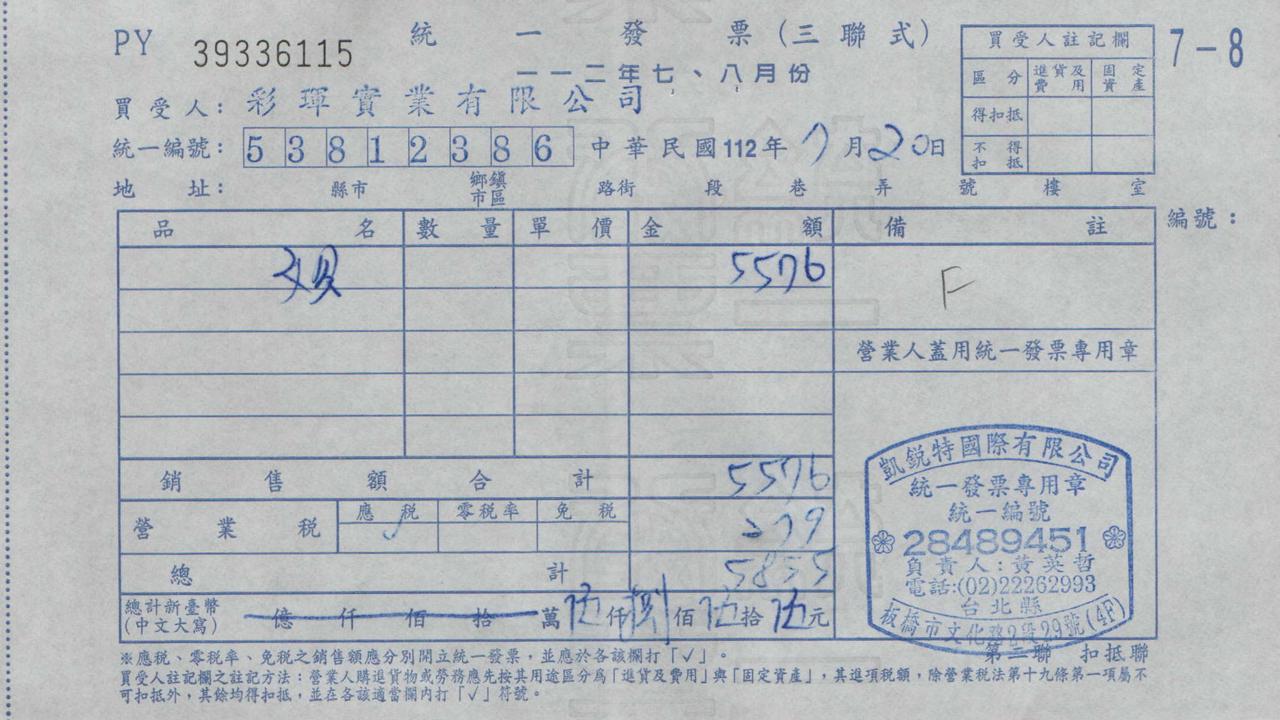 PY 39336115
統一發票(三聯式)
7-8
一一二年七、八月份
買受人註記欄
區分 進貨及費用 固定資產
得扣抵
不得扣抵
買受人: 彩琿實業有限公司
統一編號: 53812386 中華民國112年7月20日
地址: 縣市 鄉鎮市區 路街 段 巷 弄 號 樓 室
編號:
品名 數量 單價 金額 備註
5576
F
營業人蓋用統一發票專用章
銷售額合計 5576
營業稅 應稅 零稅率 免稅 279
✓
總計 5855
總計新臺幣(中文大寫) 億仟佰拾萬伍仟捌佰伍拾伍元
凱銳特國際有限公司
統一發票專用章
統一編號
28489451
負責人:黃英哲
電話:(02)22262993
台北縣
板橋市文化路2段29號(4F)
第二聯 扣抵聯
※應稅、零稅率、免稅之銷售額應分別開立統一發票,並應於各該欄打「✓」。
買受人註記欄之註記方法:營業人購進貨物或勞務應先按其用途區分為「進貨及費用」與「固定資產」,其進項稅額,除營業稅法第十九條第一項屬不
可扣抵外,其餘均得扣抵,並在各該適當欄內打「✓」符號。